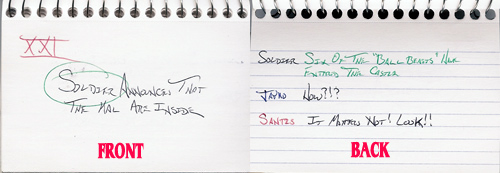 XXI
Soldier Announces That
The Mal Are Inside
FRONT
Soldier Six Of The "Ball Beasts" Have
Entered The Castle
Jayko How?!?
Santis It Matters Not! Look!!
BACK